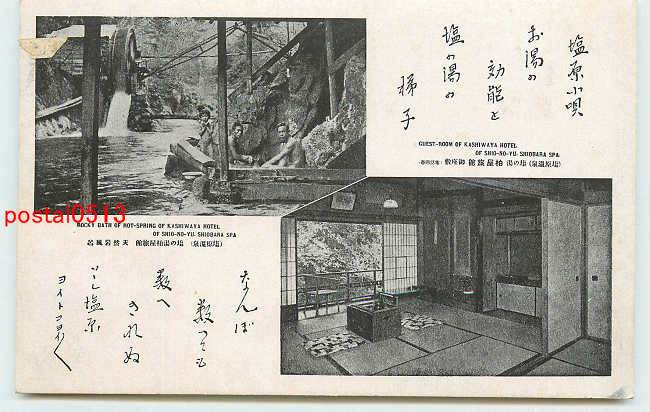 塩原小唄
お湯の
効能と
塩の湯の
梯子
GUEST-ROOM OF KASHIWAYA HOTEL
OF SHIO-NO-YU, SHIOBARA SPA.
(塩原温泉) 塩の湯 柏屋旅館 御座敷
ROCKY BATH OF HOT-SPRING OF KASHIWAYA HOTEL
OF SHIO-NO-YU, SHIOBARA SPA
(塩原温泉) 塩の湯柏屋旅館 天然岩風呂
なんぼ
数へても
数へ
きれぬ
塩原
ヨイトコ
postal0513